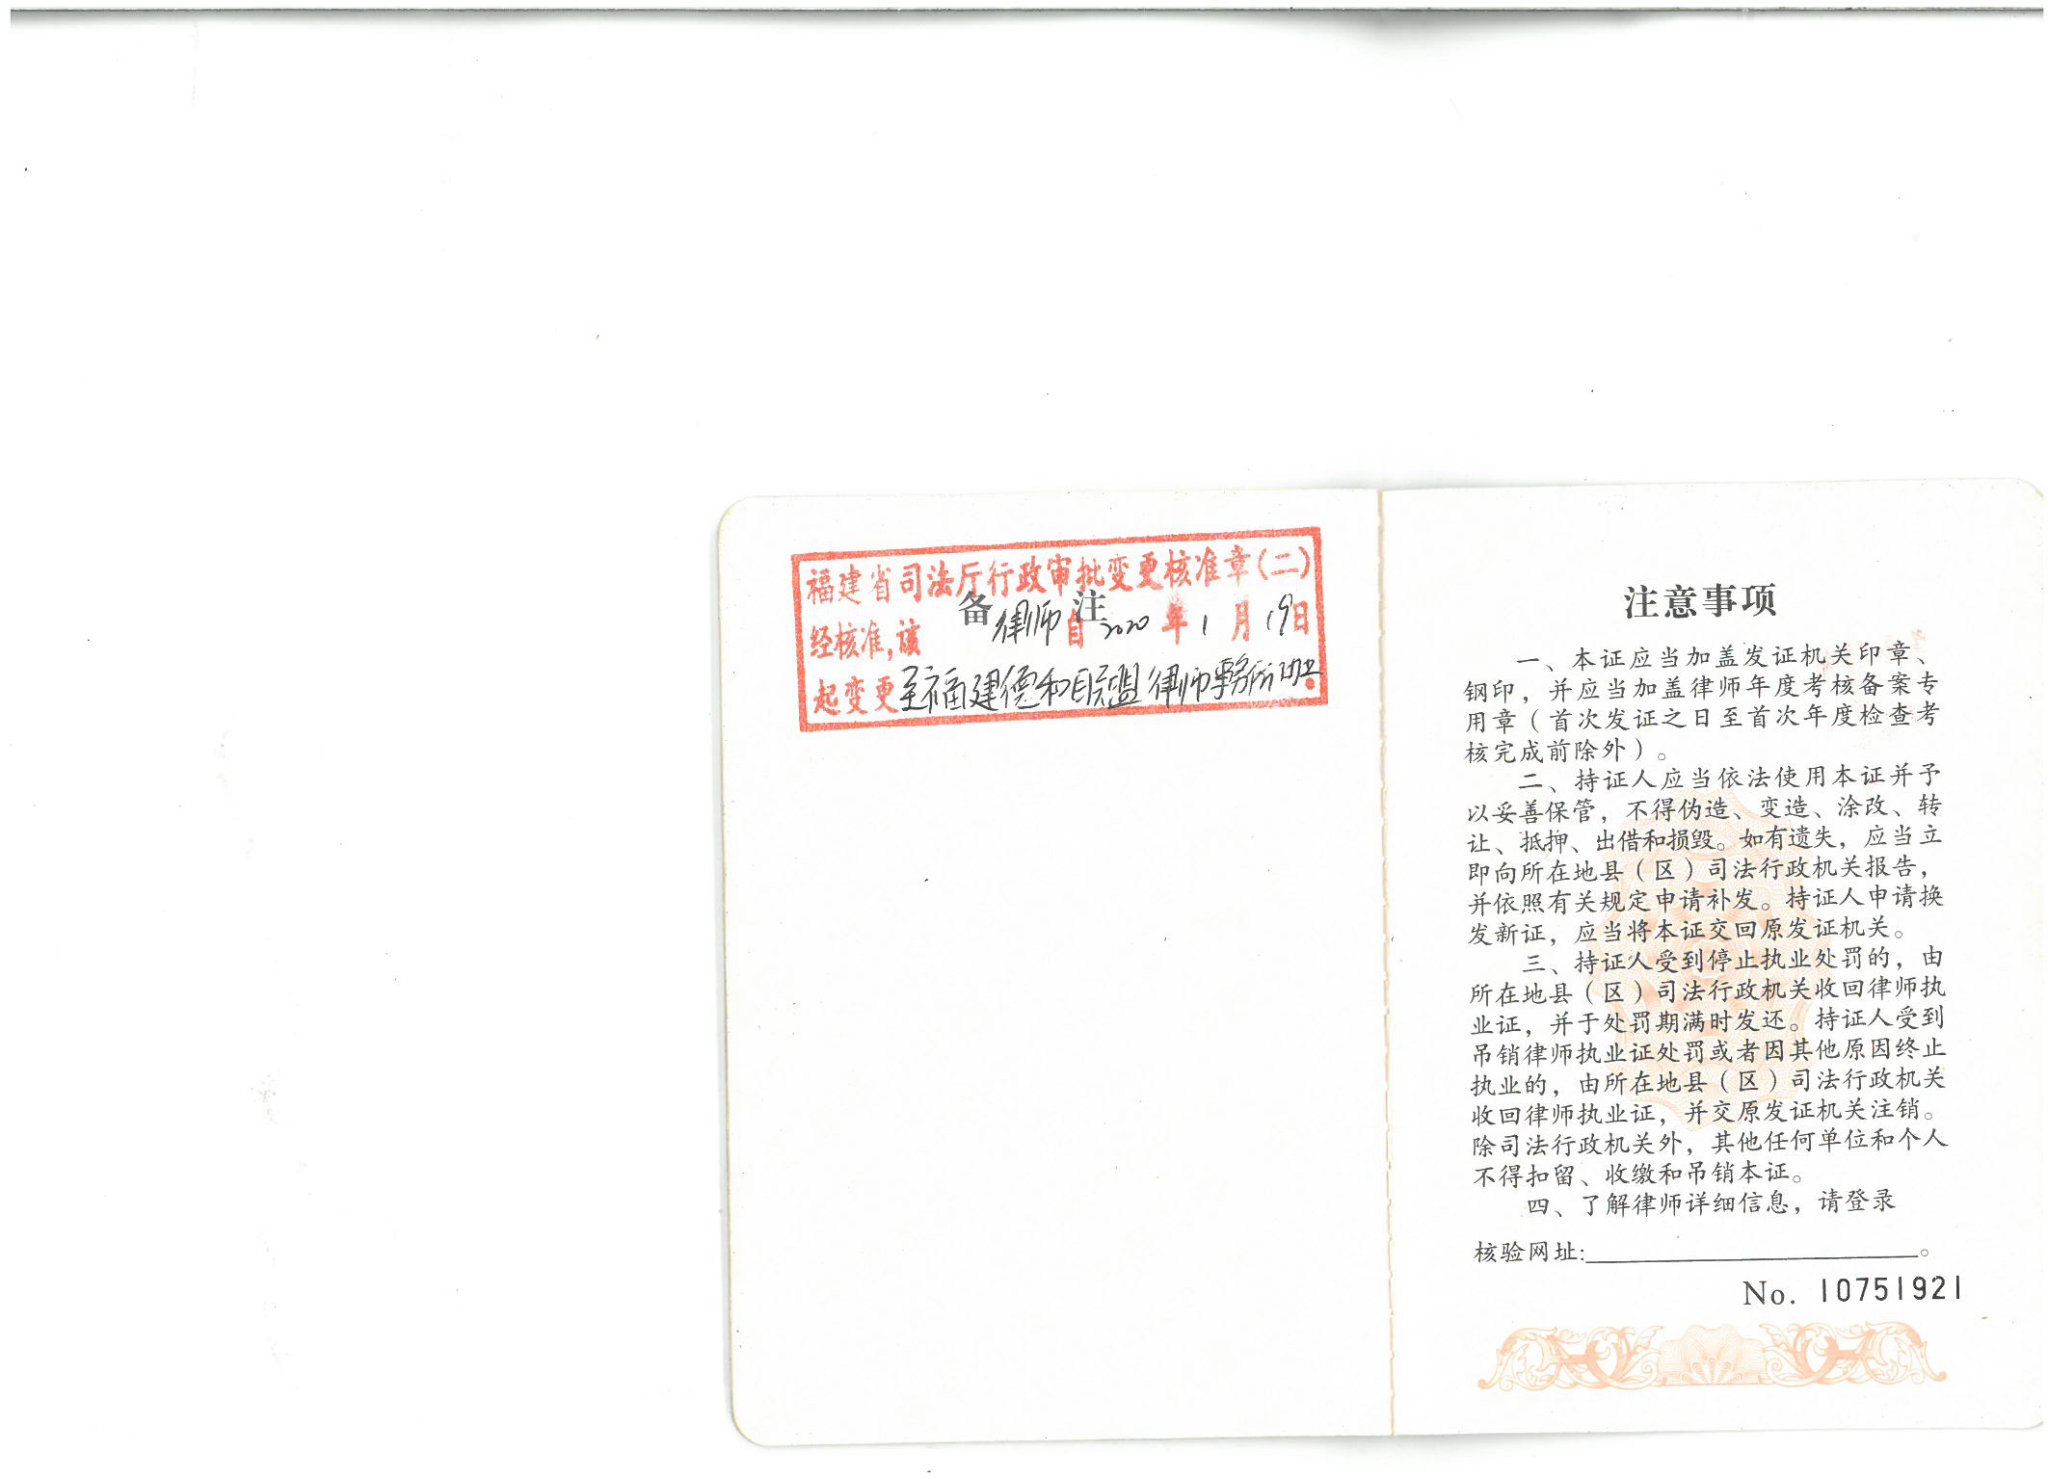 福建省司法厅行政审批变更核准章(二)
备 注
经核准,该律师自2020年1月19日
起变更至福建德和联盟律师事务所执业。
注意事项
一、本证应当加盖发证机关印章、
钢印，并应当加盖律师年度考核备案专
用章（首次发证之日至首次年度检查考
核完成前除外）。
二、持证人应当依法使用本证并予
以妥善保管，不得伪造、变造、涂改、转
让、抵押、出借和损毁。如有遗失，应当立
即向所在地县（区）司法行政机关报告，
并依照有关规定申请补发。持证人申请换
发新证，应当将本证交回原发证机关。
三、持证人受到停止执业处罚的，由
所在地县（区）司法行政机关收回律师执
业证，并于处罚期满时发还。持证人受到
吊销律师执业证处罚或者因其他原因终止
执业的，由所在地县（区）司法行政机关
收回律师执业证，并交原发证机关注销。
除司法行政机关外，其他任何单位和个人
不得扣留、收缴和吊销本证。
四、了解律师详细信息，请登录
核验网址:。
No. 10751921